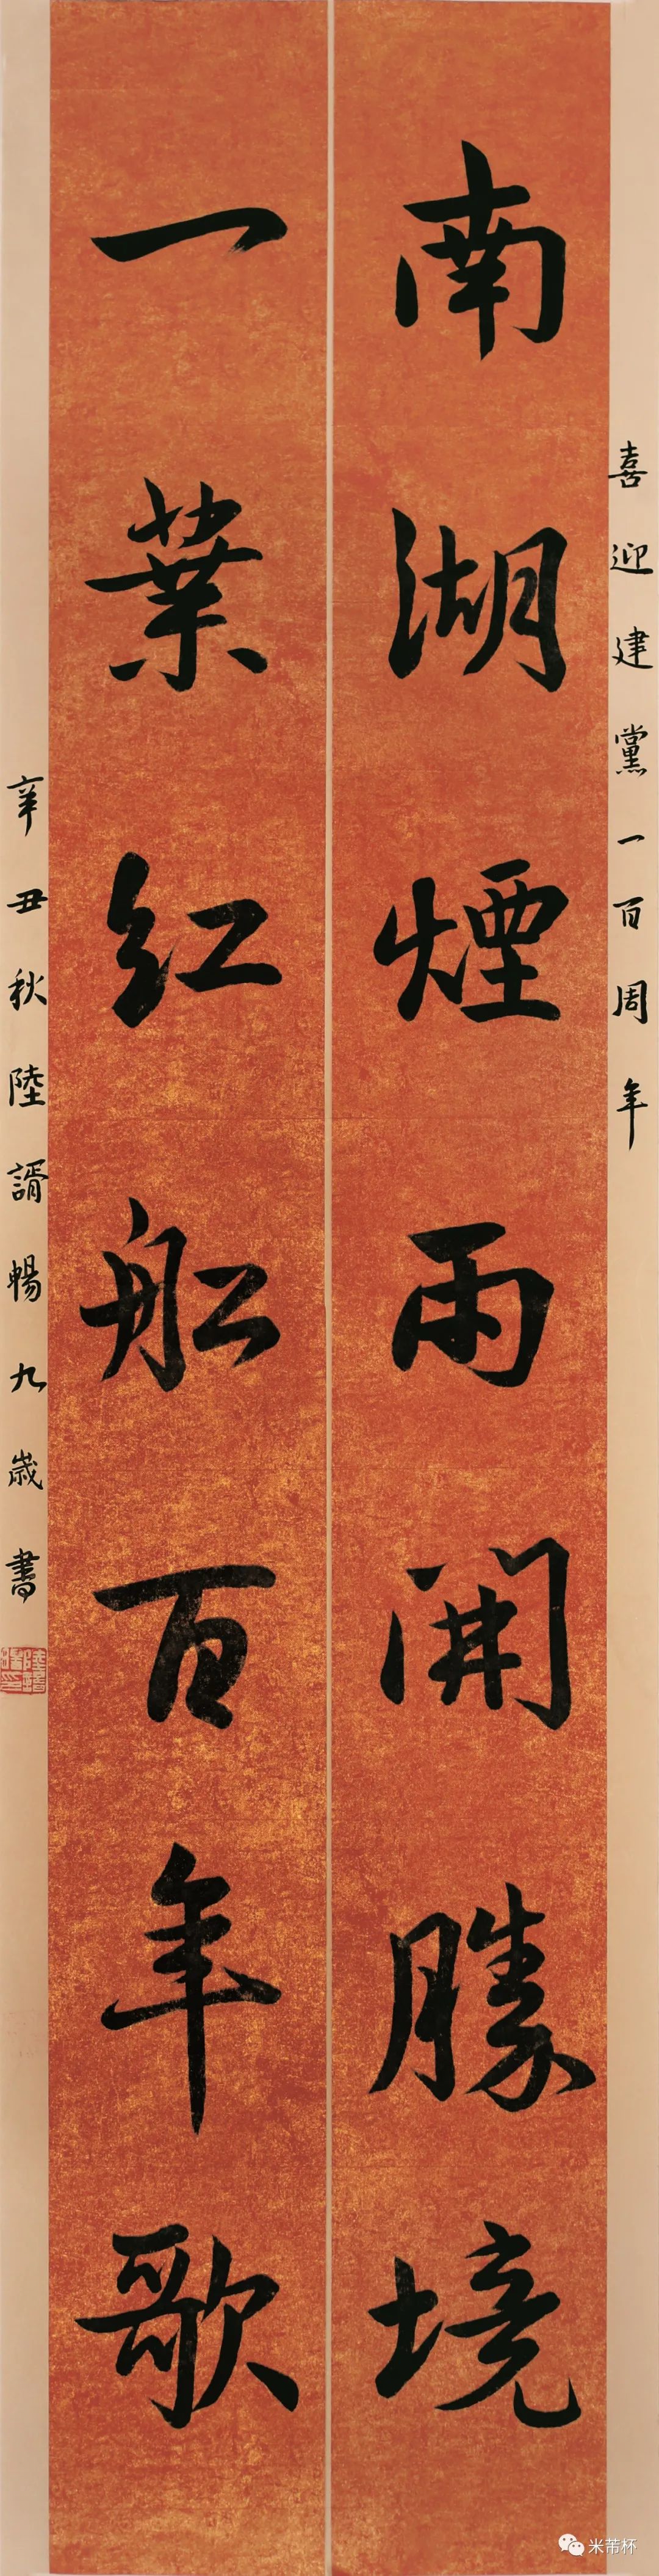 喜迎建黨一百周年
南湖煙雨開勝境
一葉紅船百年歌
辛丑秋陸諝暢九歲書
米芾杯